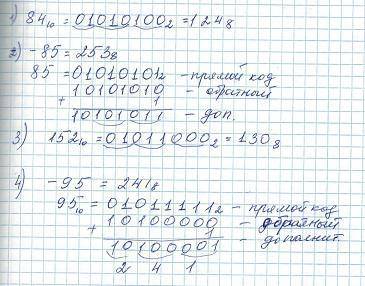 1) 84₁₀ = 01010100₂ = 124₈
2) -85 = 253₈
85 = 01010101₂ - прямой код
10101010 - обратный
+ 1
10101011 - доп.
3) 152₁₀ = 01011000₂ = 130₈
4) -95 = 241₈
95₁₀ = 01011111₂ - прямой код
10100000 - обратный
+ 1
10100001 - дополнит.
2 4 1